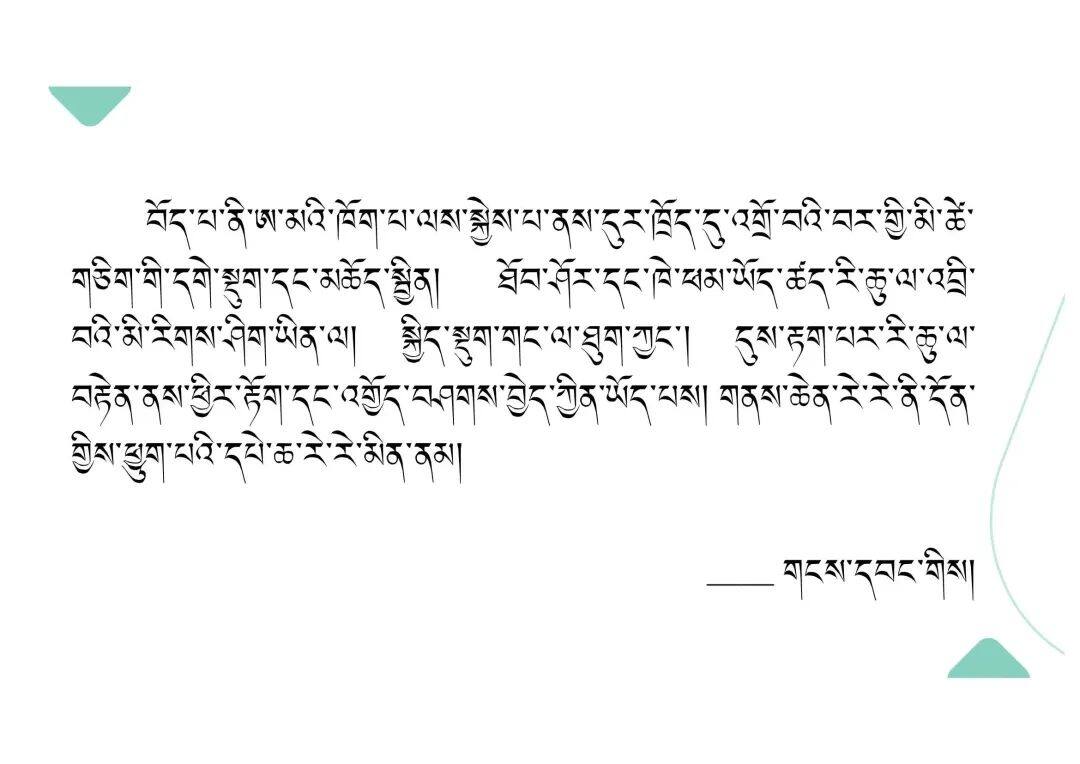 བོད་པ་ནི་ཨ་མའི་ཁོག་པ་ལས་སྐྱེས་པ་ནས་དུར་ཁྲོད་དུ་འགྲོ་བའི་བར་གྱི་མི་ཚེ་
གཅིག་གི་དགེ་སྡུག་དང་མཆོད་སྦྱིན། ཐོབ་ཤོར་དང་ཁེ་ཕམ་ཡོད་ཚད་རི་ཆུ་ལ་འབྲི་
བའི་མི་རིགས་ཤིག་ཡིན་ལ། སྐྱིད་སྡུག་གང་ལ་ཐུག་ཀྱང་། དུས་རྟག་པར་རི་ཆུ་ལ་
བརྟེན་ནས་ཕྱིར་རྟོག་དང་འགྱོད་བཤགས་བྱེད་ཀྱིན་ཡོད་པས། གནས་ཆེན་རེ་རེ་ནི་དོན་
གྱིས་ཕྱུག་པའི་དཔེ་ཆ་རེ་རེ་མིན་ནམ།
____ གངས་དབང་གིས།